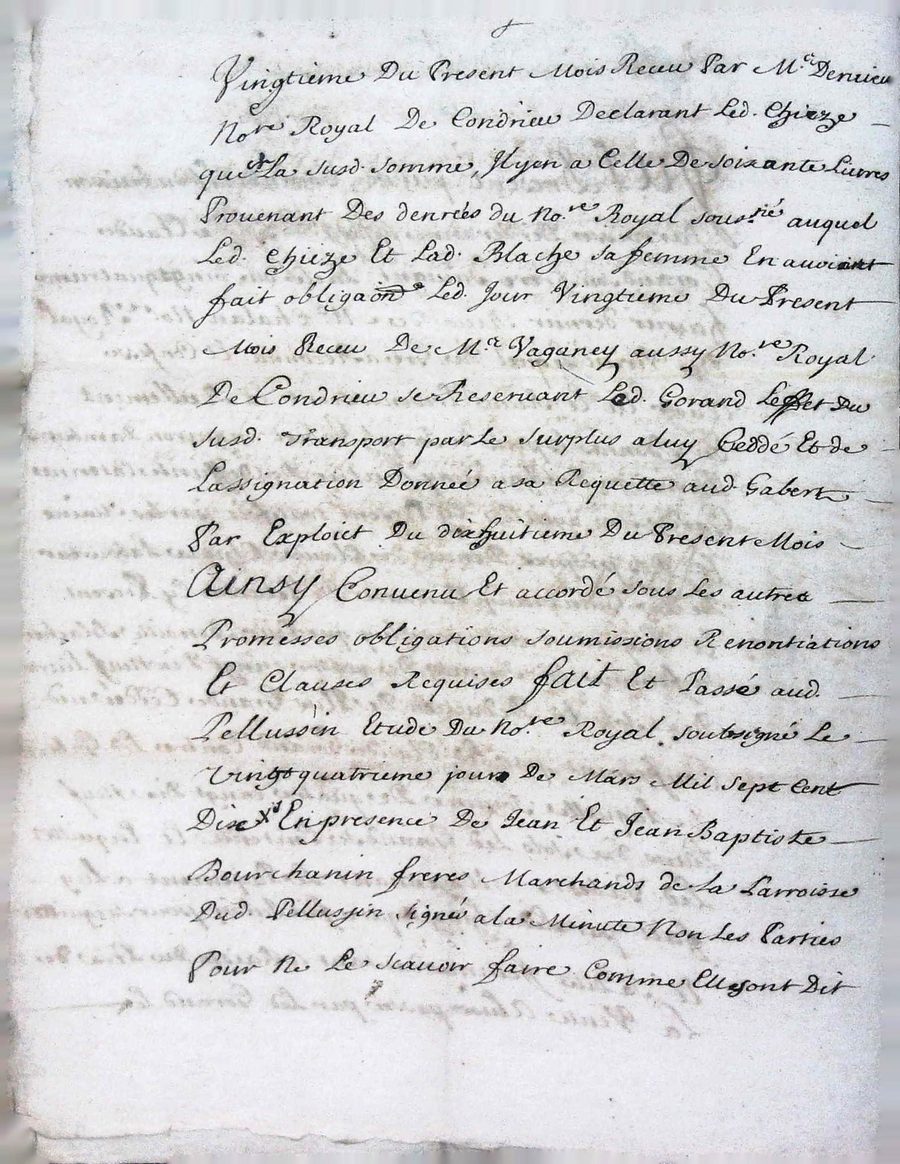 Vingtieme Du Present Mois Receu Par Me Denuieu
Nore Royal De Condrieu Declarant Led. Chieze
que La susd. somme, Jlyen a Celle De soixante Liures
Prouenant Des denrées du No.re Royal sous.né auquel
Led. Chieze Et Lad. Blache sa femme En auoient
fait obligaon Led. Jour Vingtieme Du Present
Mois Receu De Mr Vaganey aussy No.re Royal
De Condrieu se Reseruant Led. Gorand Leffet Du
susd. Transport par Le surplus a luy Ceddé Et de
Lassignation Donnée a sa Requette aud. Gabert
Par Exploict Du dixhuitieme Du Present Mois
Ainsy Conuenu Et accordé sous Les autres
Promesses obligations soumissions Renontiations
Et Clauses Requises fait Et Passé aud.
Pellussin Etude Du No.re Royal soubsigné Le
Vingt quatrieme jour De Mars Mil sept Cent
Dix En presence De Jean Et Jean Baptiste
Bourchanin freres Marchands de La Parroisse
Dud Pellussin signé a la Minute Non Les Parties
Pour Ne Le scauoir faire Comme Elle sont Dit